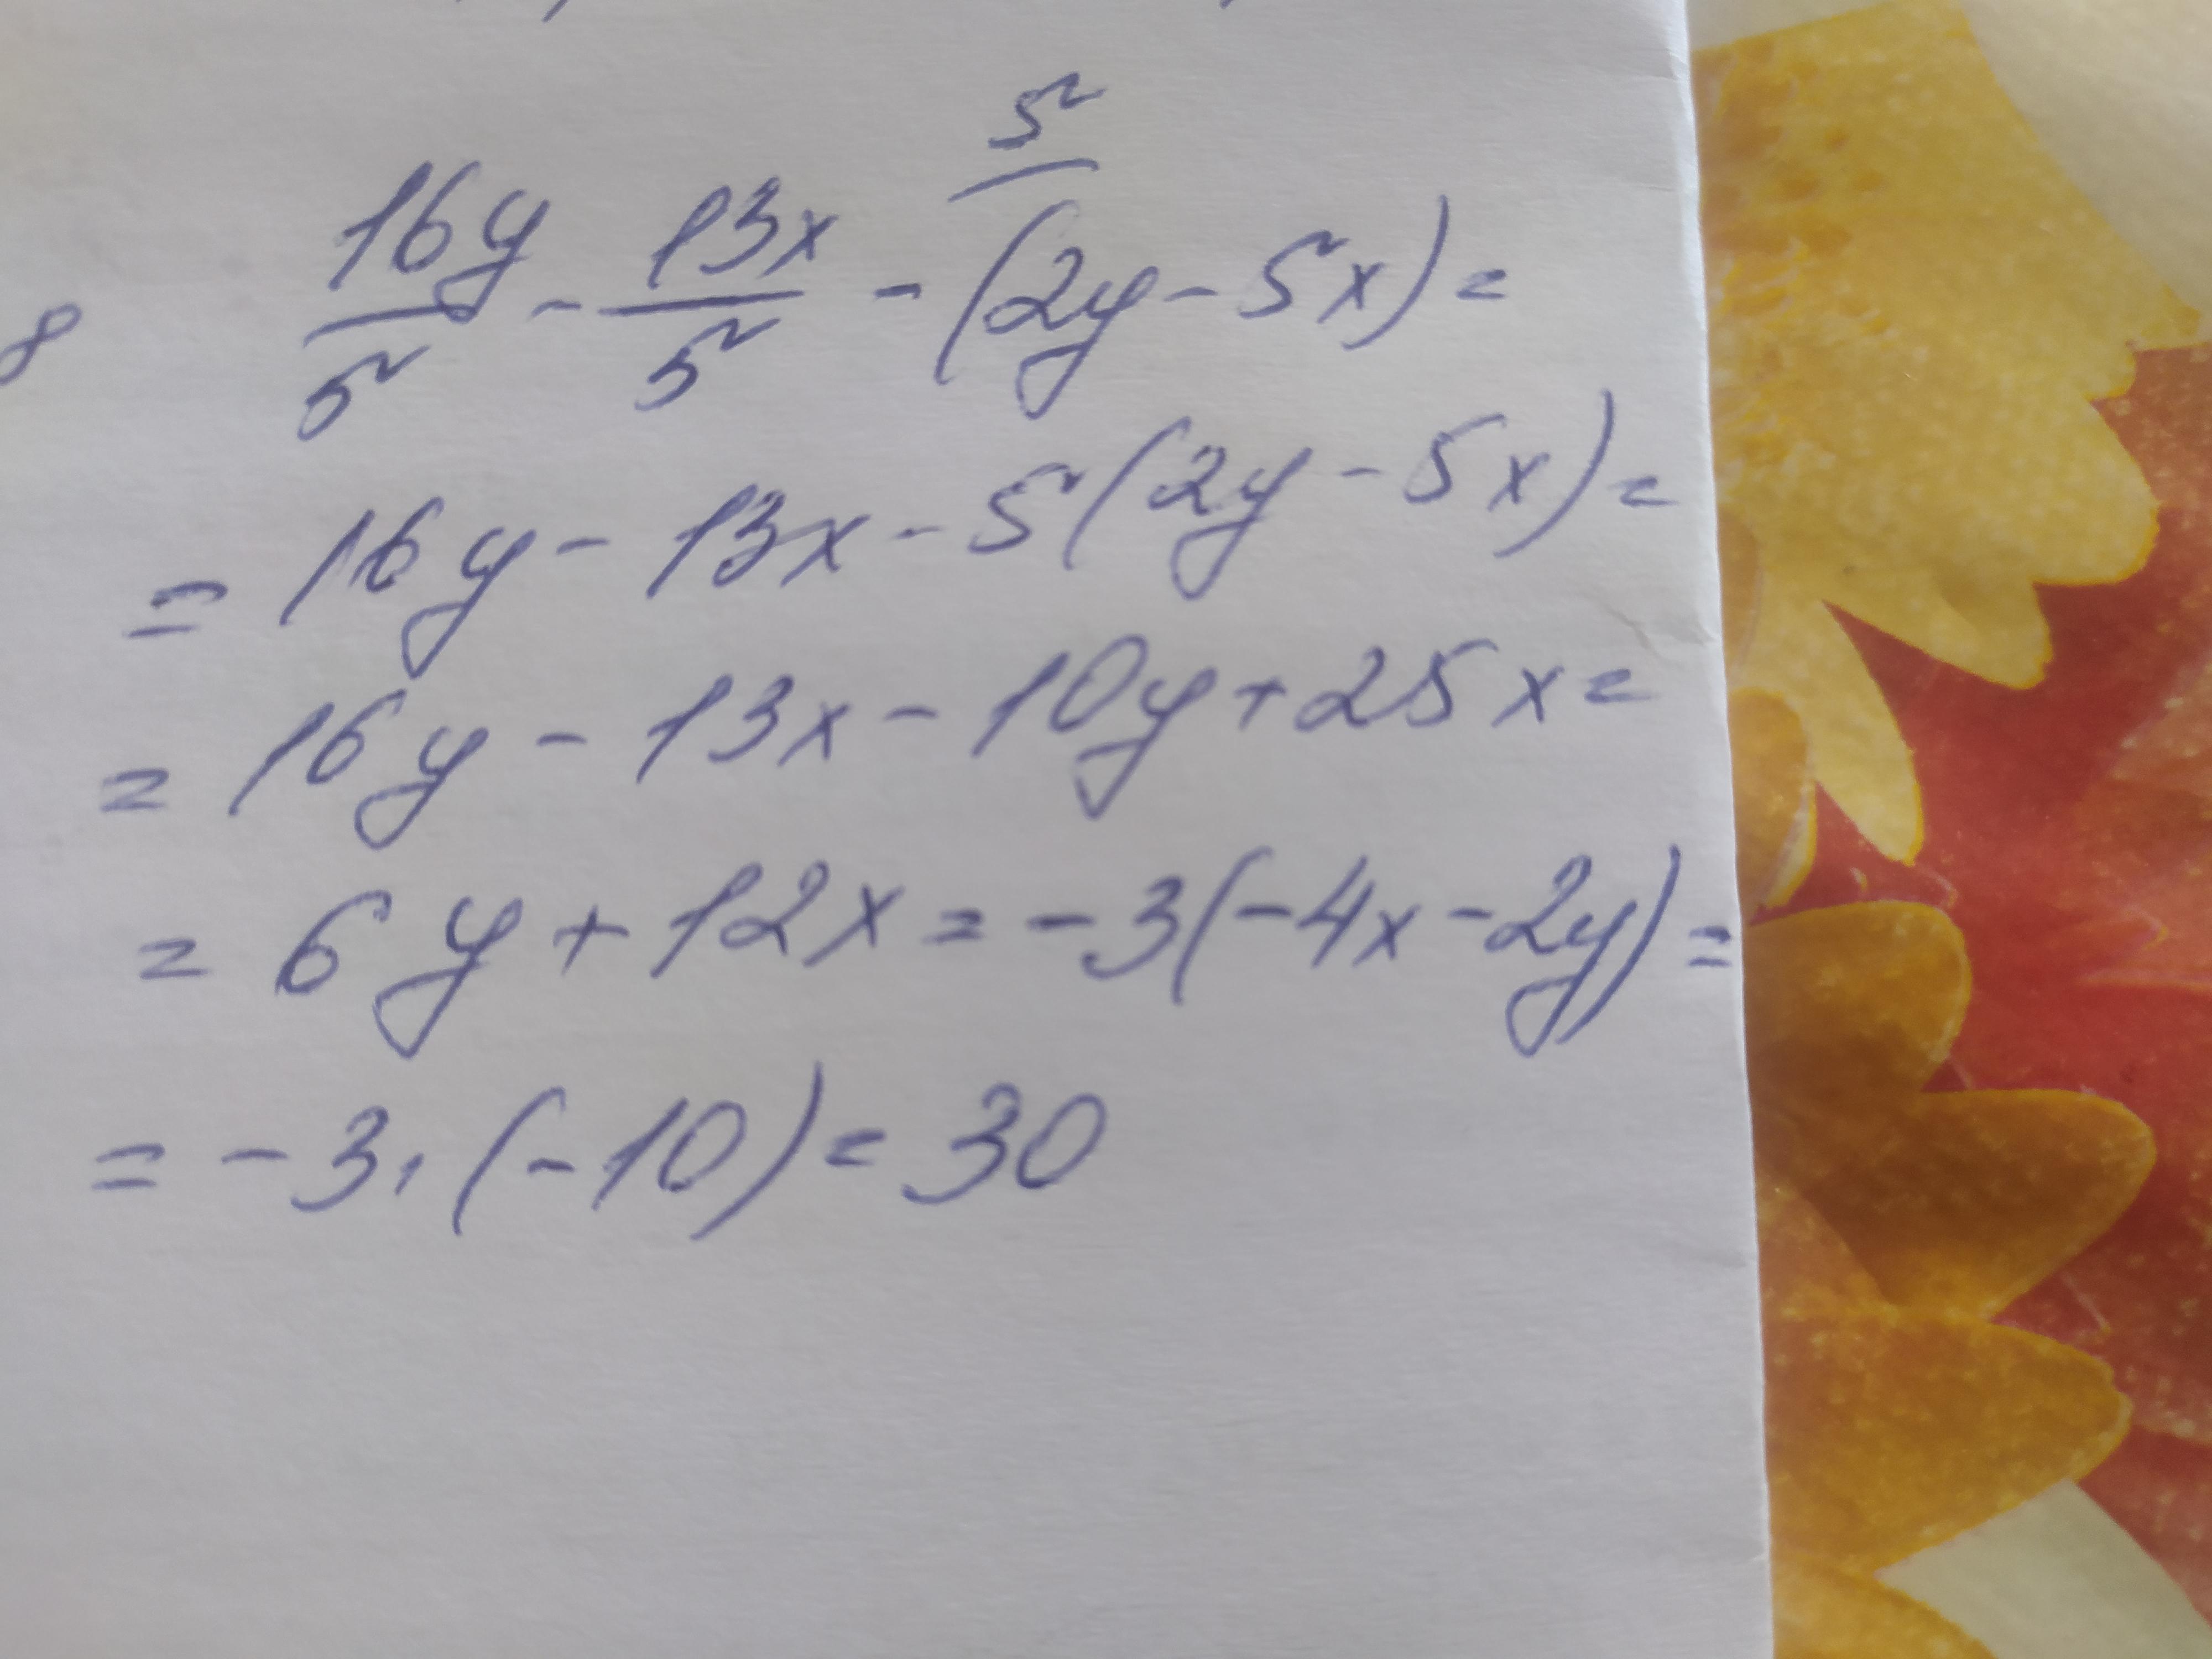 8 16y/5 - 13x/5 - 5/(2y - 5x) =
= 16y - 13x - 5(2y - 5x) =
= 16y - 13x - 10y + 25x =
= 6y + 12x = -3(-4x - 2y) =
= -3 · (-10) = 30